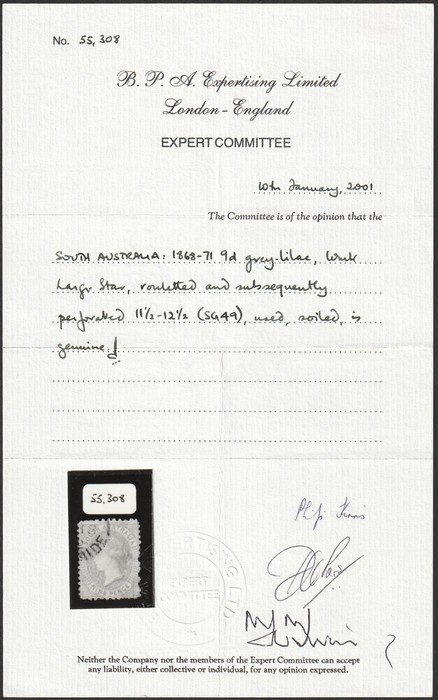 No. 55,308
B. P. A. Expertising Limited
London - England
EXPERT COMMITTEE
10th January, 2001
The Committee is of the opinion that the
SOUTH AUSTRALIA: 1868-71 9d grey-lilac, Wmk
Large Star, rouletted and subsequently
perforated 11½-12½ (SG49), used, soiled, is
genuine
55,308
EXPERTISING LTD
EXPERT
COMMITTEE
Neither the Company nor the members of the Expert Committee can accept
any liability, either collective or individual, for any opinion expressed.